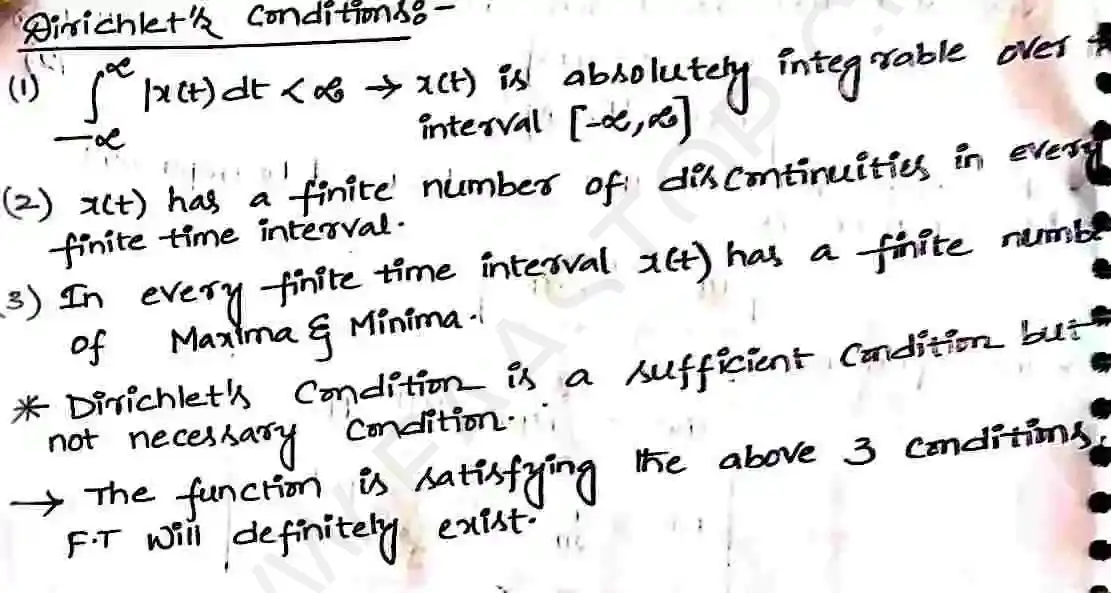 Dirichlet's Conditions:-
(1) ∫_{-∞}^{∞} |x(t)| dt < ∞ → x(t) is absolutely integrable over
interval [-∞, ∞]
(2) x(t) has a finite number of discontinuities in every
finite time interval.
3) In every finite time interval x(t) has a finite numbe
of Maxima & Minima.
* Dirichlet's Condition is a sufficient Condition but
not necessary Condition.
→ The function is satisfying the above 3 conditions,
F.T will definitely exist.